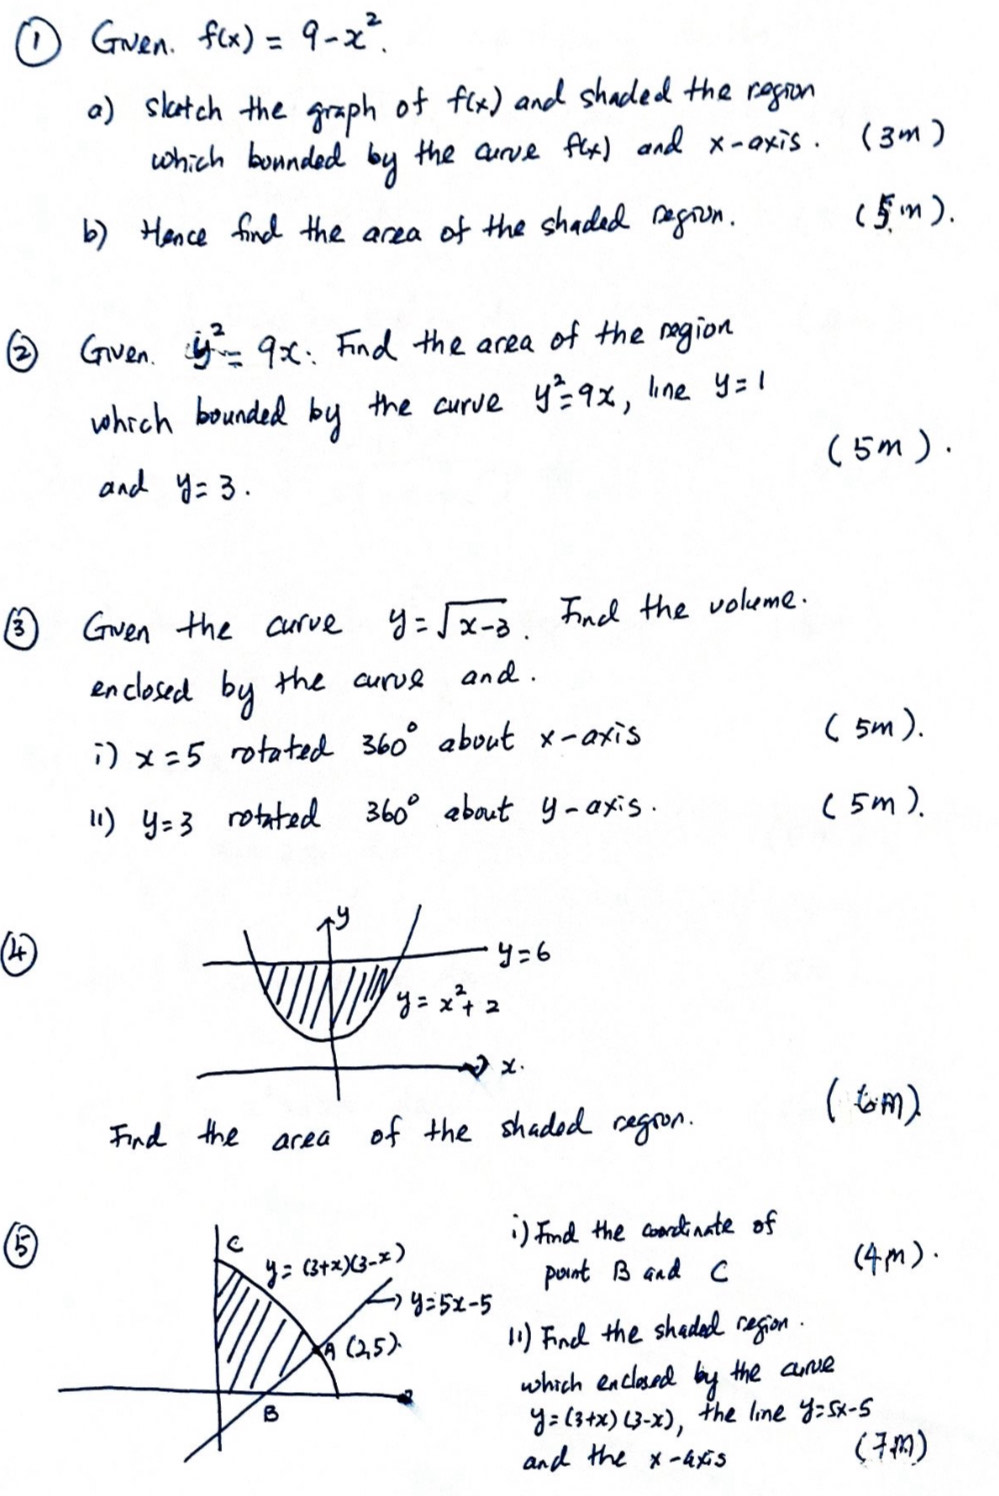 ① Given. f(x) = 9-x².
a) sketch the graph of f(x) and shaded the region
which bounded by the curve f(x) and x-axis. (3m)
b) Hence find the area of the shaded region. (5m).
② Given. y² = 9x. Find the area of the region
which bounded by the curve y²=9x, line y=1
and y=3. (5m).
③ Given the curve y=√x-3. Find the volume.
enclosed by the curve and.
i) x=5 rotated 360° about x-axis (5m).
ii) y=3 rotated 360° about y-axis. (5m).
④
y
y=6
y = x²+2
x.
Find the area of the shaded region. (6m)
⑤
C
y = (3+x)(3-x)
y=5x-5
A (2,5).
B
i) Find the coordinate of
point B and C (4m).
ii) Find the shaded region.
which enclosed by the curve
y=(3+x)(3-x), the line y=5x-5
and the x-axis (7m)